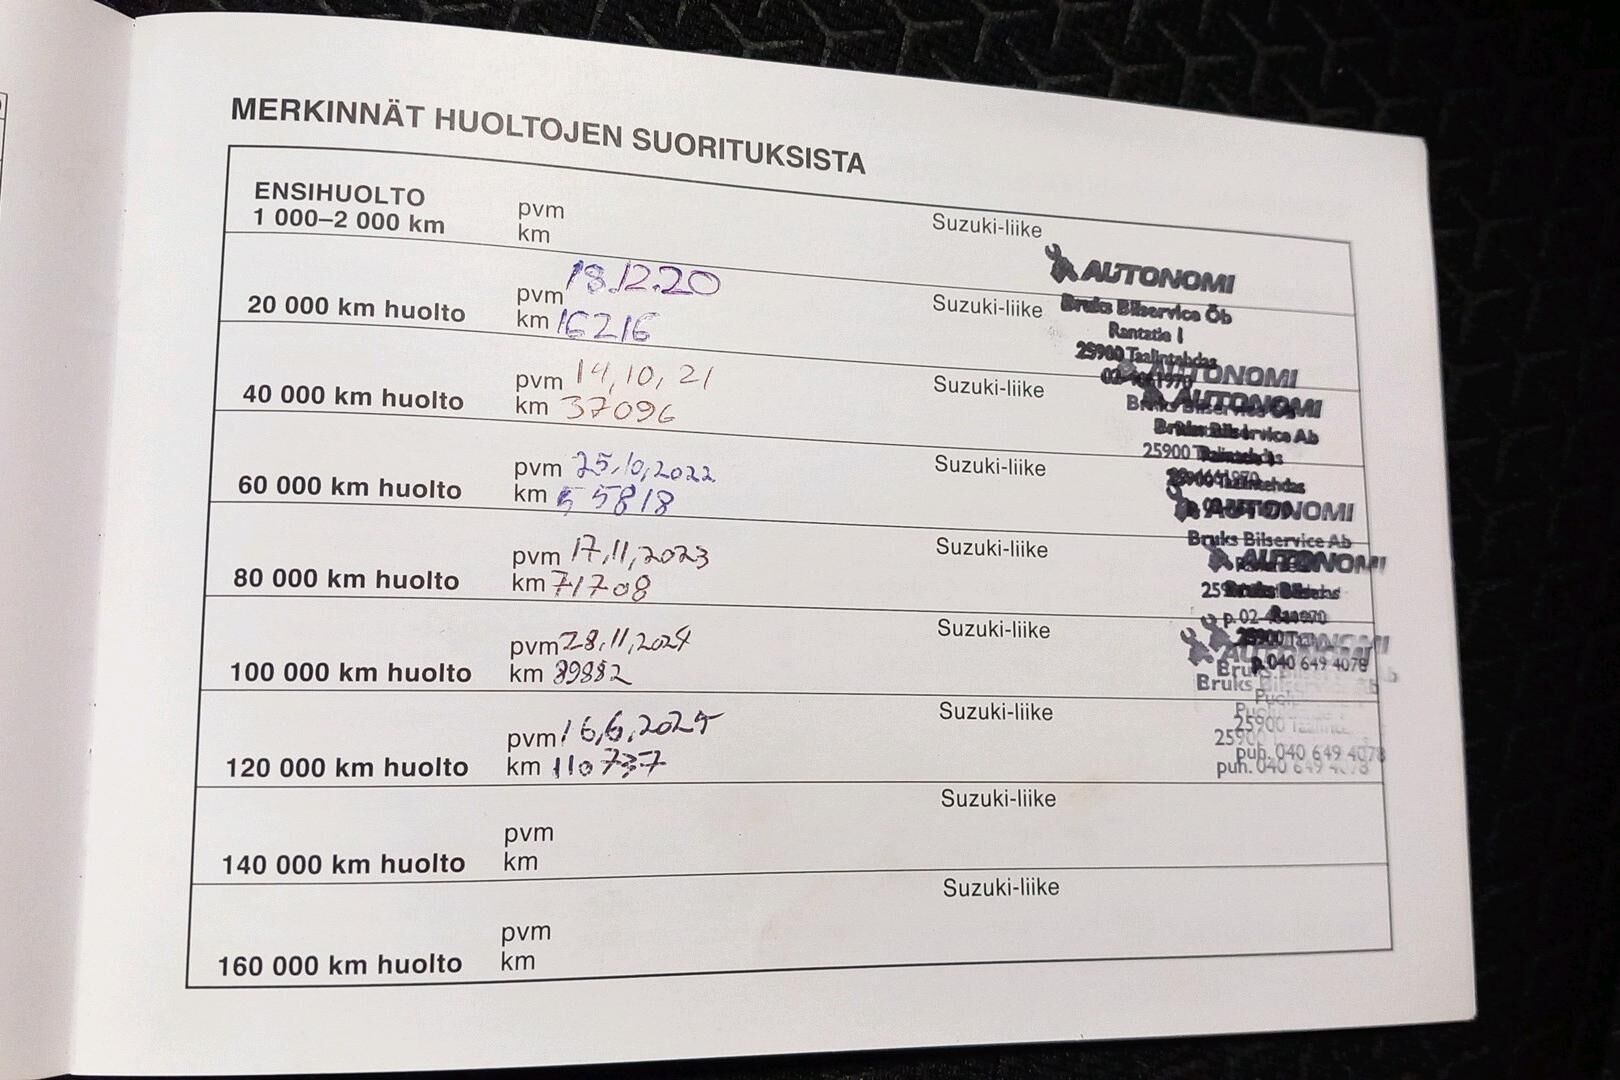 MERKINNÄT HUOLTOJEN SUORITUKSISTA
ENSIHUOLTO
1 000–2 000 km
pvm
km
Suzuki-liike
20 000 km huolto
pvm 18.12.20
km 16216
Suzuki-liike
AUTONOMI
Bruks Bilservice Öb
Rantatie 1
25900 Taalintehdas
40 000 km huolto
pvm 14,10,21
km 37096
Suzuki-liike
AUTONOMI
AUTONOMI
60 000 km huolto
pvm 25,10,2022
km 55818
Suzuki-liike
25900
AUTONOMI
Bruks Bilservice Ab
80 000 km huolto
pvm 17,11,2023
km 71708
Suzuki-liike
AUTONOMI
p. 02
100 000 km huolto
pvm 28,11,2024
km
Suzuki-liike
25900
p. 040 649 4078
Bruks
120 000 km huolto
pvm 16,6,2025
km 110737
Suzuki-liike
25900
puh. 040 649 4078
puh. 040 649 4078
140 000 km huolto
pvm
km
Suzuki-liike
160 000 km huolto
pvm
km
Suzuki-liike